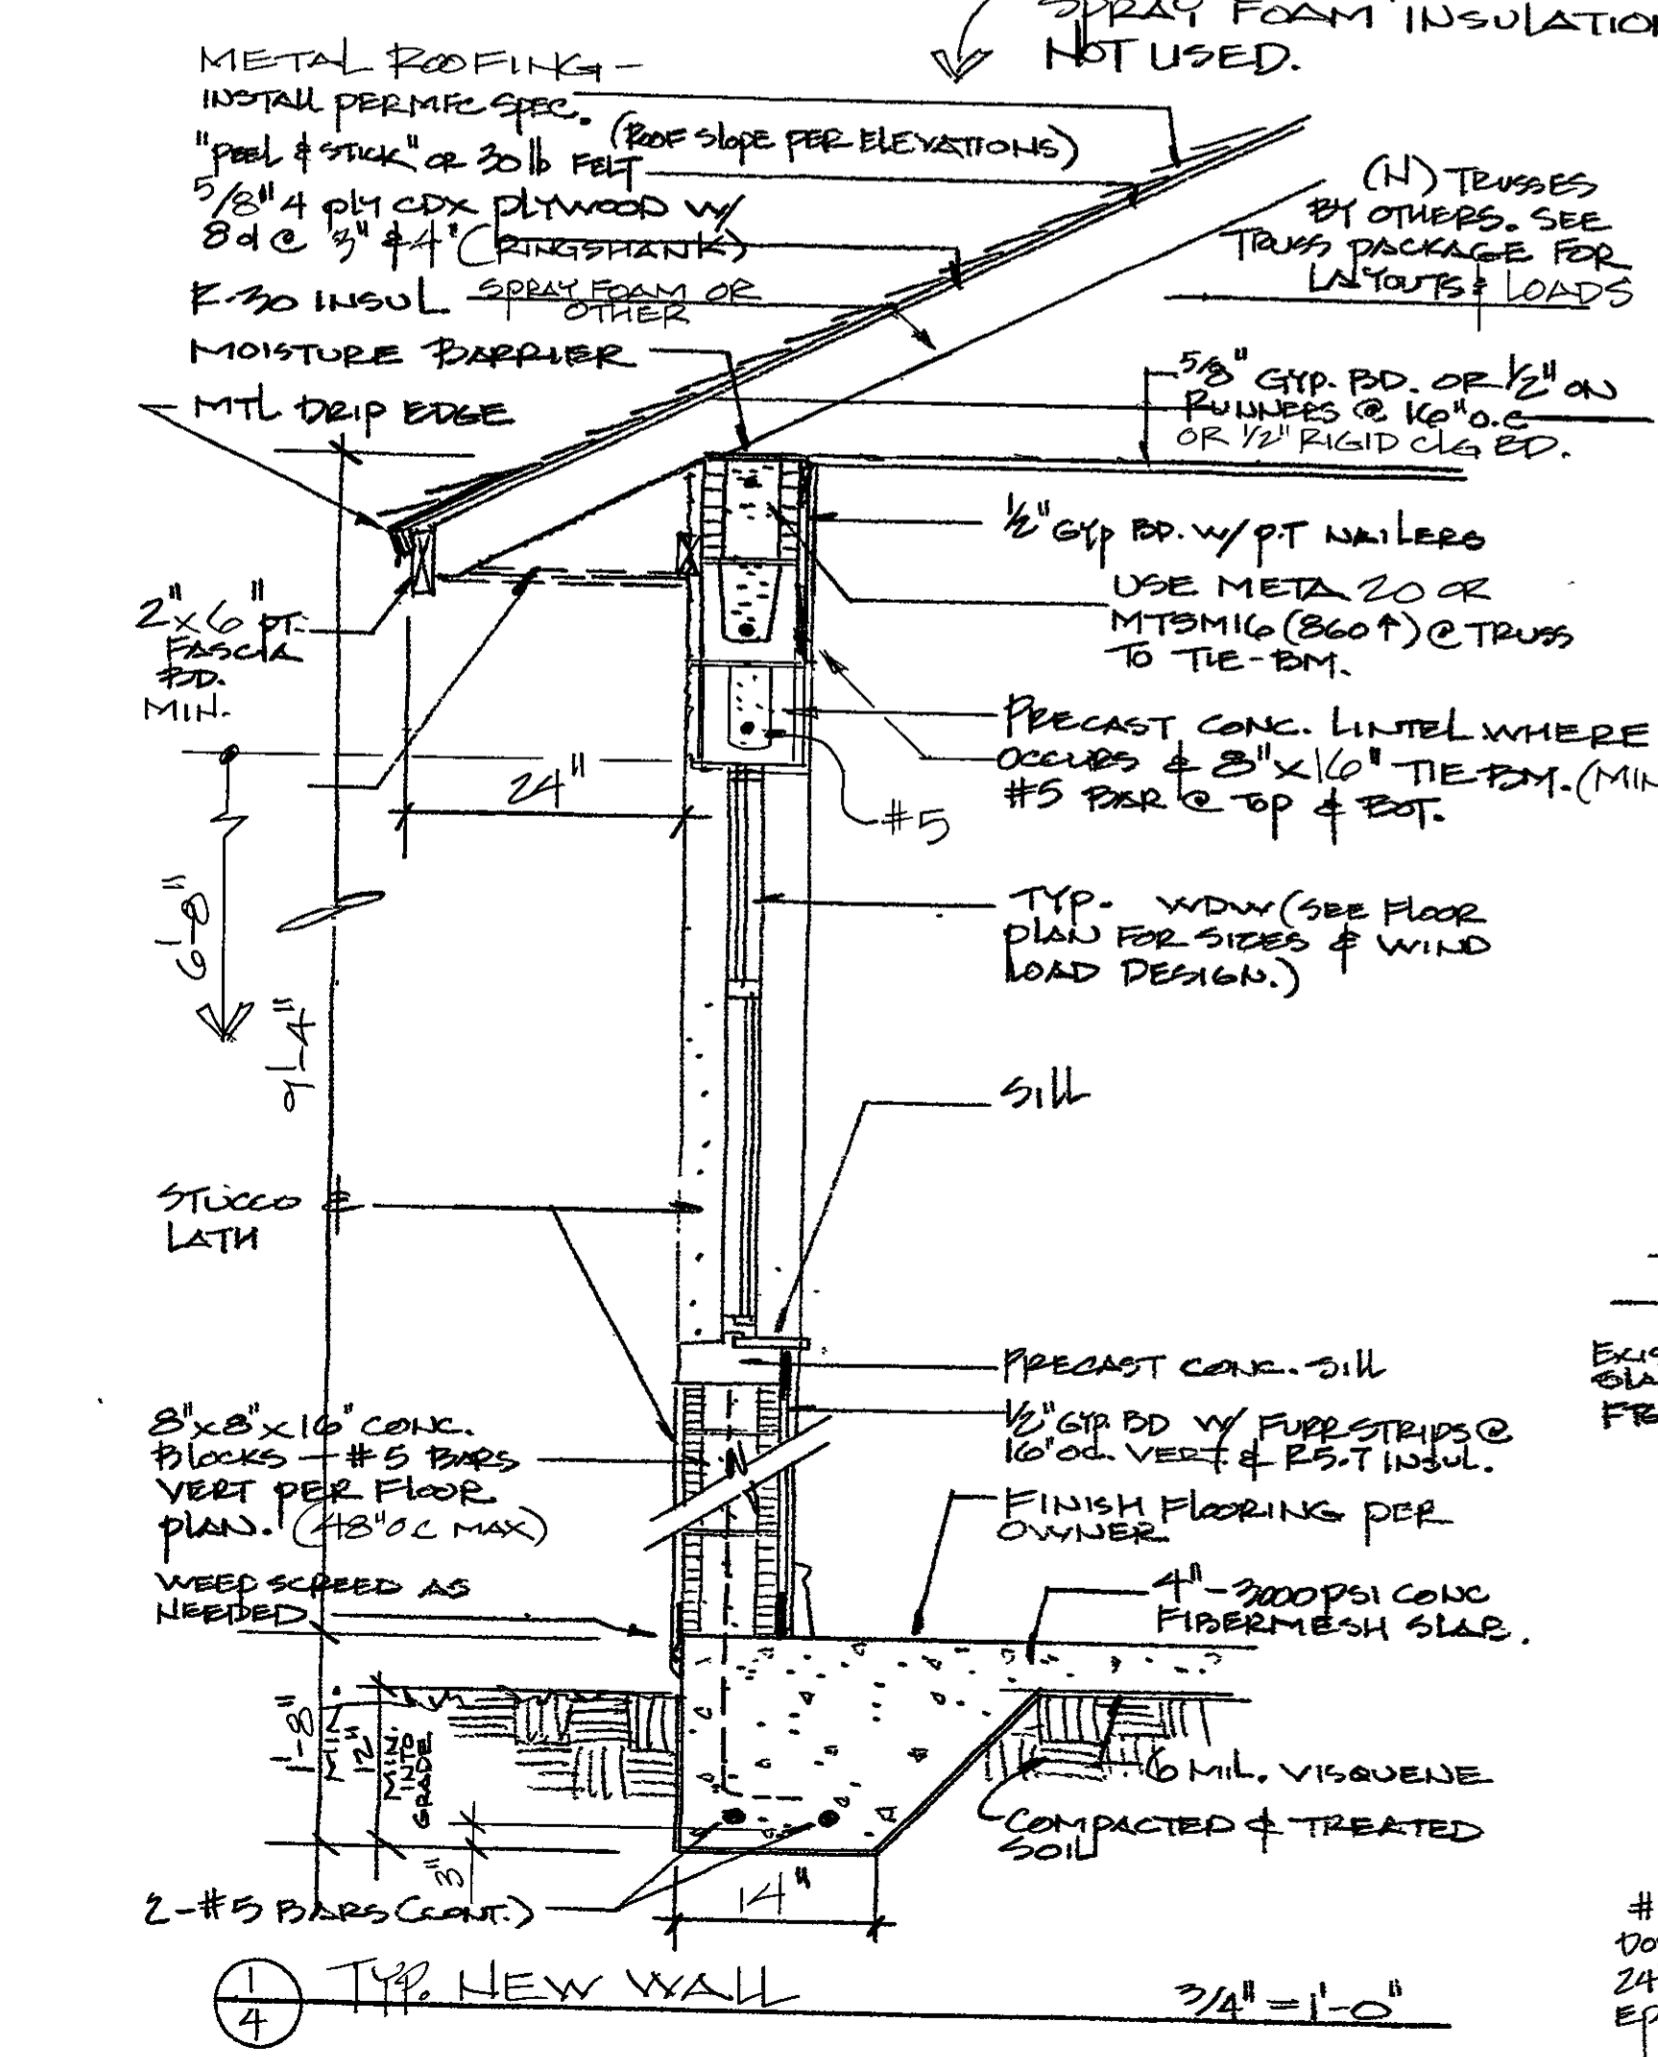 SPRAY FOAM INSULATION
NOT USED.
METAL ROOFING -
INSTALL PER MFG SPEC.
(ROOF SLOPE PER ELEVATIONS)
"PEEL & STICK" OR 30 lb FELT
5/8" 4 PLY CDX PLYWOOD W/
8d @ 3" & 4" (RINGSHANK)
R-30 INSUL. SPRAY FOAM OR
OTHER
MOISTURE BARRIER
MTL DRIP EDGE
(N) TRUSSES
BY OTHERS. SEE
TRUSS PACKAGE FOR
LAYOUTS & LOADS
5/8" GYP. BD. OR 1/2" ON
RUNNERS @ 16" O.C
OR 1/2" RIGID CLG BD.
1/2" GYP BD. W/ P.T NAILERS
USE META 20 OR
MTSM16 (860↑) @ TRUSS
TO TIE-BM.
2"x6" PT.
FASCIA
BD.
MIN.
PRECAST CONC. LINTEL WHERE
OCCURS & 8"x16" TIE BM. (MIN
#5 BAR @ TOP & BOT.
24"
#5
6'-8"
9'-4"
TYP. WDW (SEE FLOOR
PLAN FOR SIZES & WIND
LOAD DESIGN.)
SILL
STUCCO &
LATH
PRECAST CONC. SILL
1/2" GYP. BD W/ FURR STRIPS @
16" OC. VERT. & R5.7 INSUL.
8"x8"x16" CONC.
BLOCKS - #5 BARS
VERT PER FLOOR
PLAN. (48" OC MAX)
FINISH FLOORING PER
OWNER
WEEP SCREED AS
NEEDED
4"-3000 PSI CONC
FIBERMESH SLAB.
1'-8"
MIN.
12"
MIN.
INTO
GRADE
6 MIL. VISQUENE
COMPACTED & TREATED
SOIL
3"
14"
2-#5 BARS (CONT.)
1
4
TYP. NEW WALL
3/4" = 1'-0"
#
24